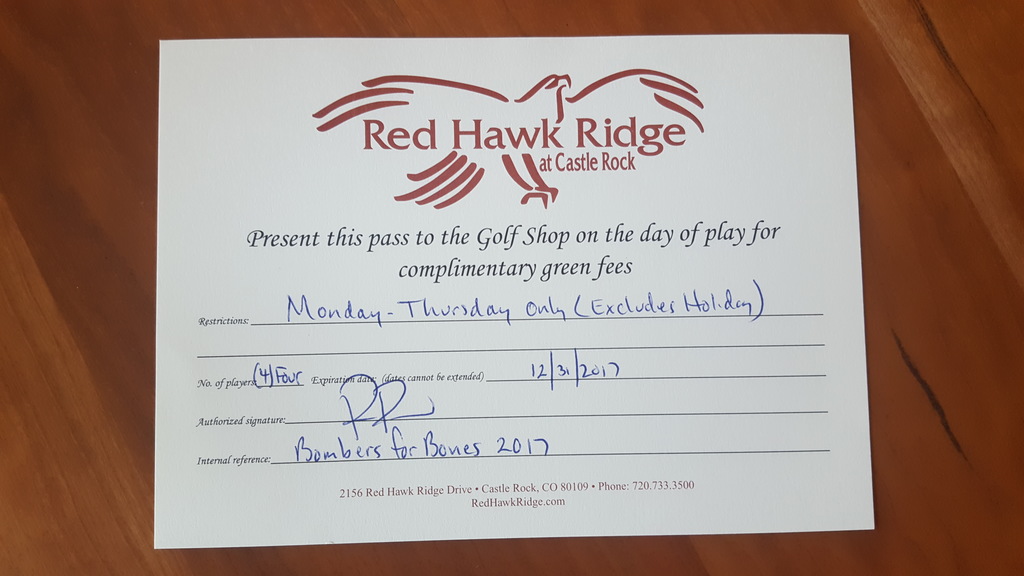 Red Hawk Ridge
at Castle Rock
Present this pass to the Golf Shop on the day of play for
complimentary green fees
Restrictions: Monday - Thursday Only (Excludes Holiday)
No. of players: (4) Four Expiration date: (dates cannot be extended) 12/31/2017
Authorized signature:
Internal reference: Bombers for Bones 2017
2156 Red Hawk Ridge Drive • Castle Rock, CO 80109 • Phone: 720.733.3500
RedHawkRidge.com